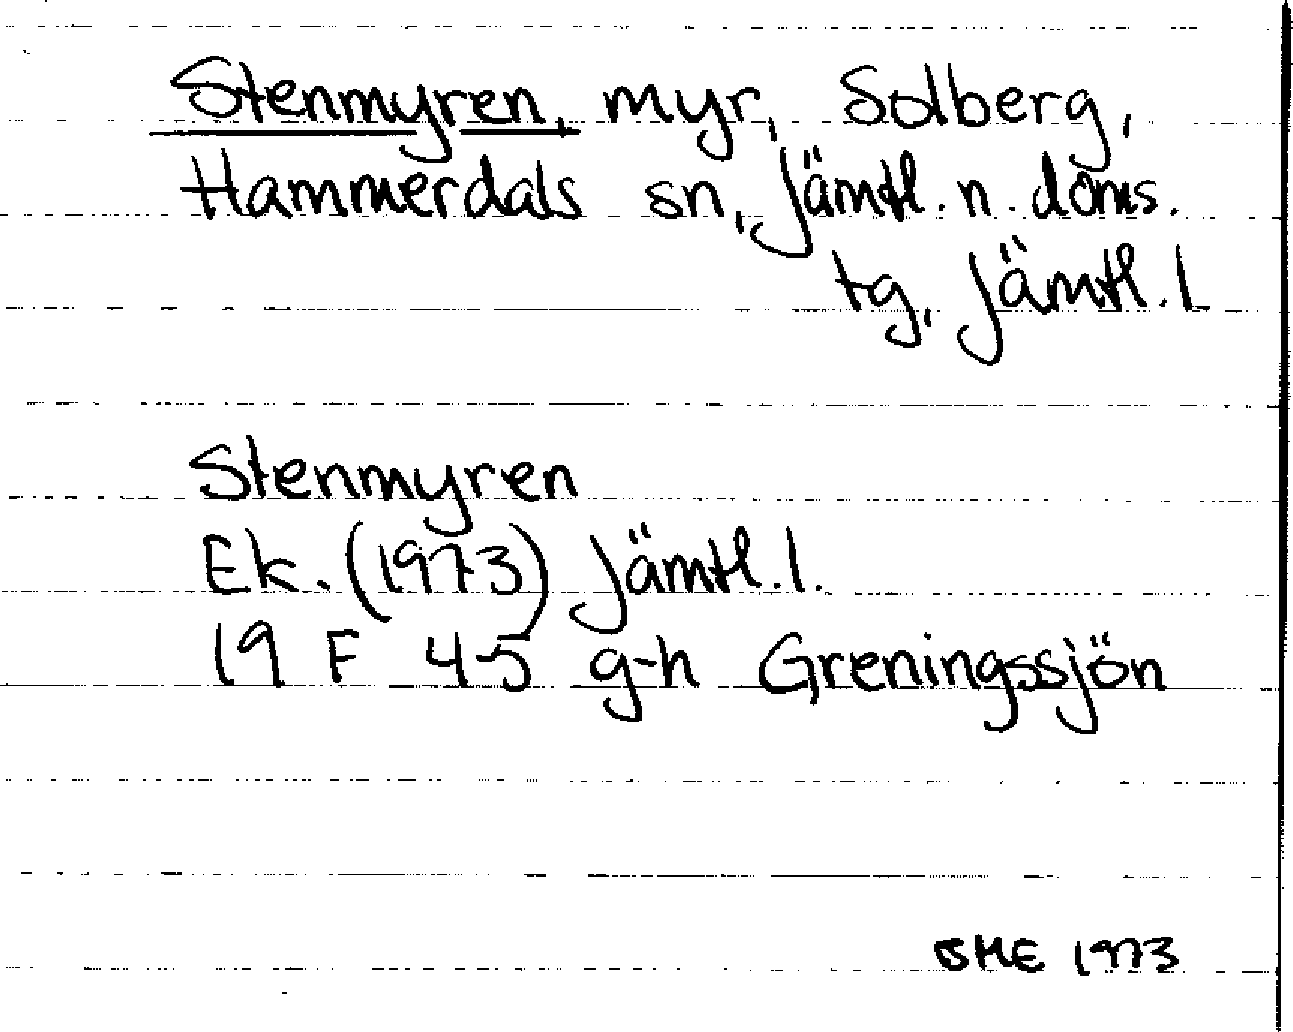 Stenmyren, myr, Solberg,
Hammerdals sn, Jämtl. n. doms.
tg, Jämtl. l
Stenmyren
Ek. (1973) Jämtl. l.
19 F 4-5 g-h Greningssjön
1973